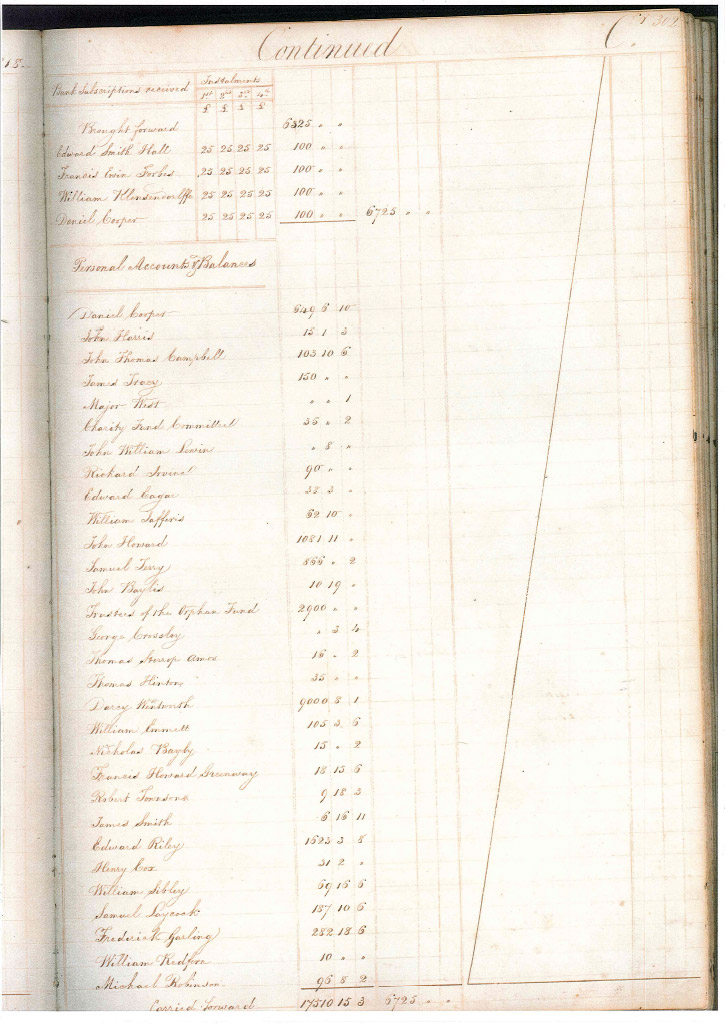 18
Continued C.r 302
Bank Subscriptions received Instalments
1st 2nd 3rd 4th
£ £ £ £
Brought forward 6325 " "
Edward Smith Hall 25 25 25 25 100 " "
Francis Ewin Forbes 25 25 25 25 100 " "
William Klensendorlffe 25 25 25 25 100 " "
Daniel Cooper 25 25 25 25 100 " " 6725 " "
Personal Accounts & Balances
Daniel Cooper 649 6 10
John Harris 15 1 3
John Thomas Campbell 103 10 6
James Tracy 150 " "
Major West " " 1
Charity Fund Committee 35 " 2
John William Lewin " 8 "
Richard Irvine 90 " "
Edward Eagar 38 3 "
William Jafferis 62 10 "
John Howard 1081 11 "
Samuel Terry 566 " 2
John Baylis 10 19 "
Trustees of the Orphan Fund 2900 " "
George Crossley " 3 4
Thomas Stirrop Amos 16 " 2
Thomas Hinton 35 " "
Darcy Wentworth 9000 8 1
William Emmett 105 3 6
Nicholas Bayby 15 " 2
Francis Howard Greenway 18 15 6
Robert Townsond 9 18 3
James Smith 6 16 11
Edward Riley 1623 3 8
Henry Cox 31 2 "
William Sibley 69 16 6
Samuel Laycock 187 10 6
Frederick Garling 282 18 6
William Redfern 10 " "
Michael Robinson 96 8 2
Carried forward 17510 15 3 6725 " "